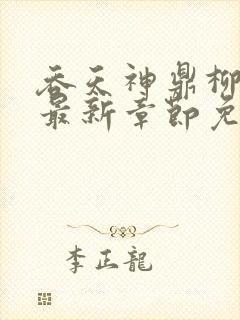 吞天神鼎柳
最新章節免
李正龍